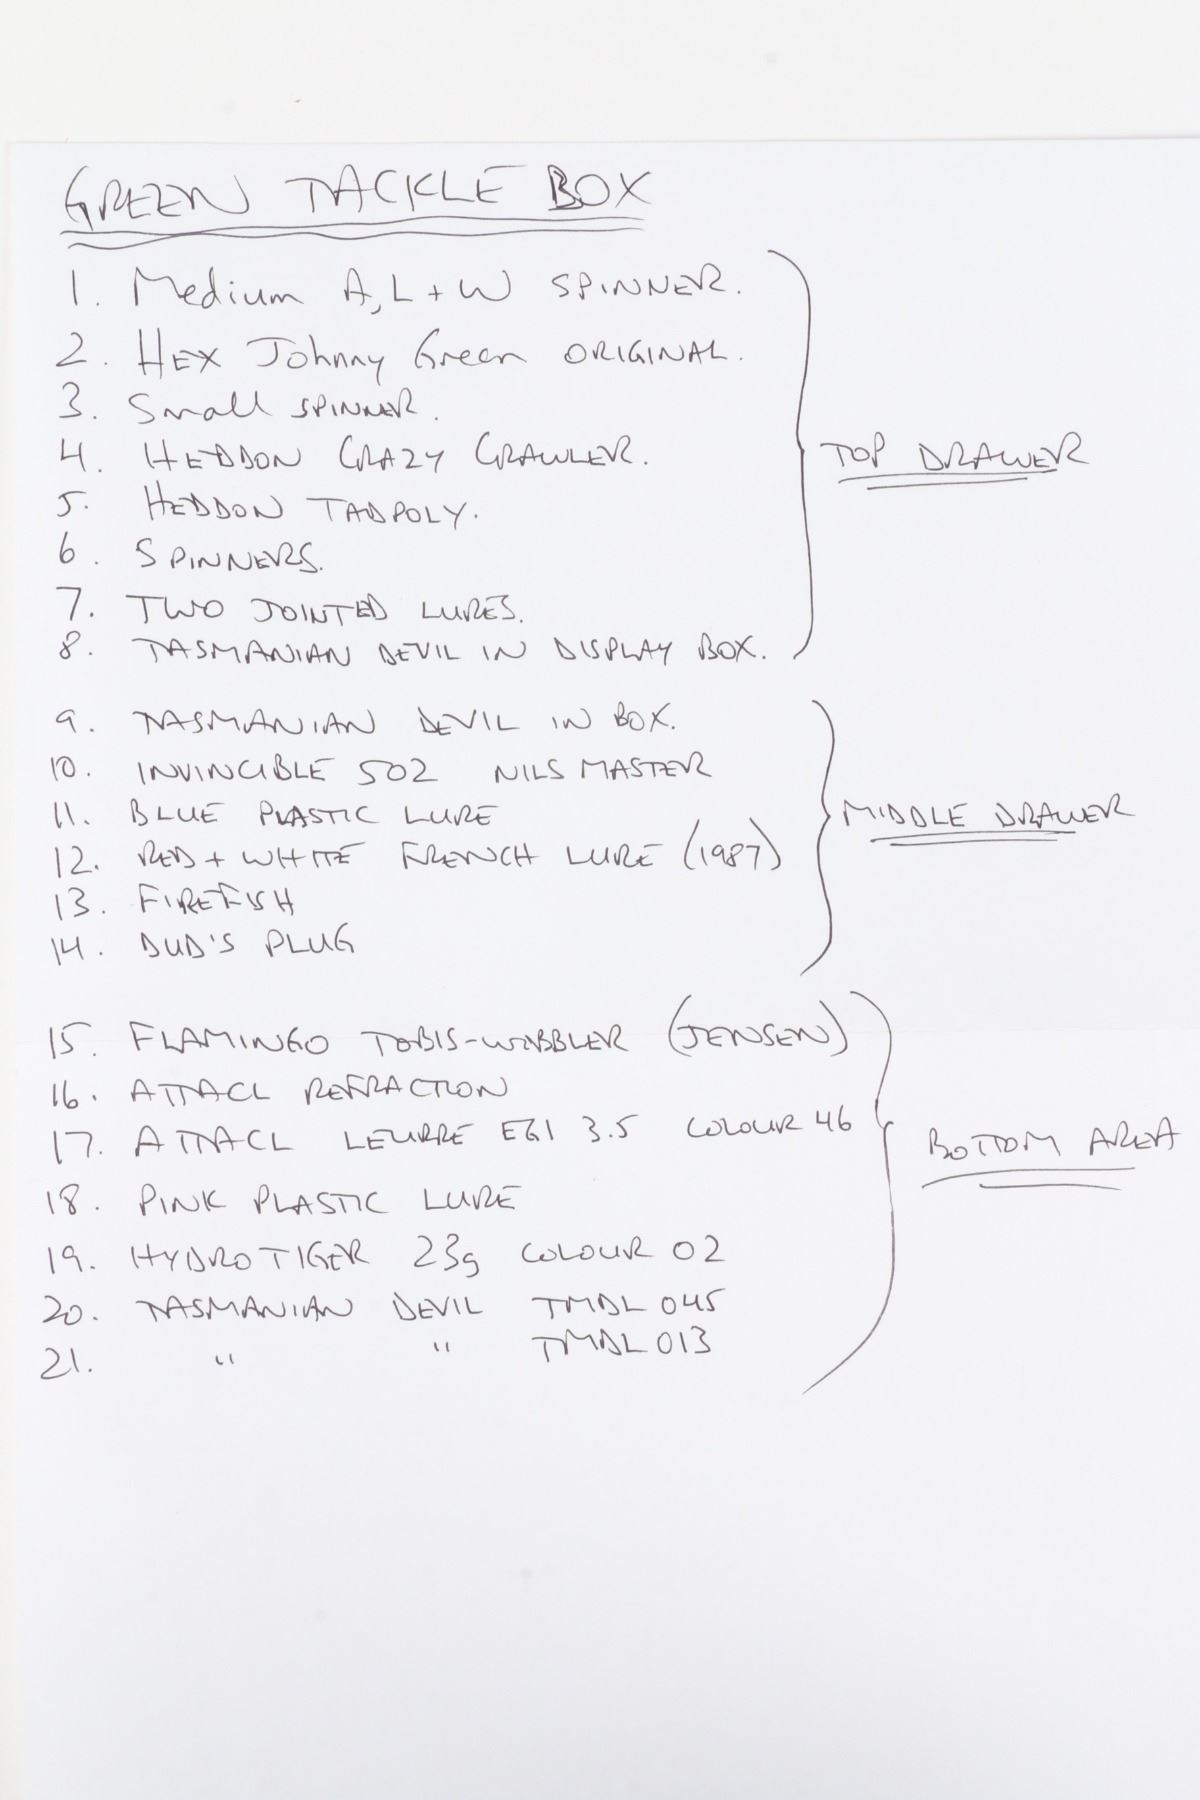 GREEN TACKLE BOX
1. Medium A, L + W SPINNER.
2. HEX Johnny Green ORIGINAL.
3. Small SPINNER.
4. HEDDON CRAZY CRAWLER.
TOP DRAWER
5. HEDDON TADPOLY.
6. SPINNERS.
7. TWO JOINTED LURES.
8. TASMANIAN DEVIL IN DISPLAY BOX.
9. TASMANIAN DEVIL IN BOX.
10. INVINCIBLE 502 NILS MASTER
11. BLUE PLASTIC LURE
MIDDLE DRAWER
12. RED + WHITE FRENCH LURE (1987)
13. FIREFISH
14. DUD'S PLUG
15. FLAMINGO TOBIS-WOBBLER (JENSEN)
16. ATTACL REFRACTION
17. ATTACL LEURRE EGI 3.5 COLOUR 46
BOTTOM AREA
18. PINK PLASTIC LURE
19. HYDRO TIGER 23g COLOUR 02
20. TASMANIAN DEVIL TMDL 045
21. " " TMDL 013